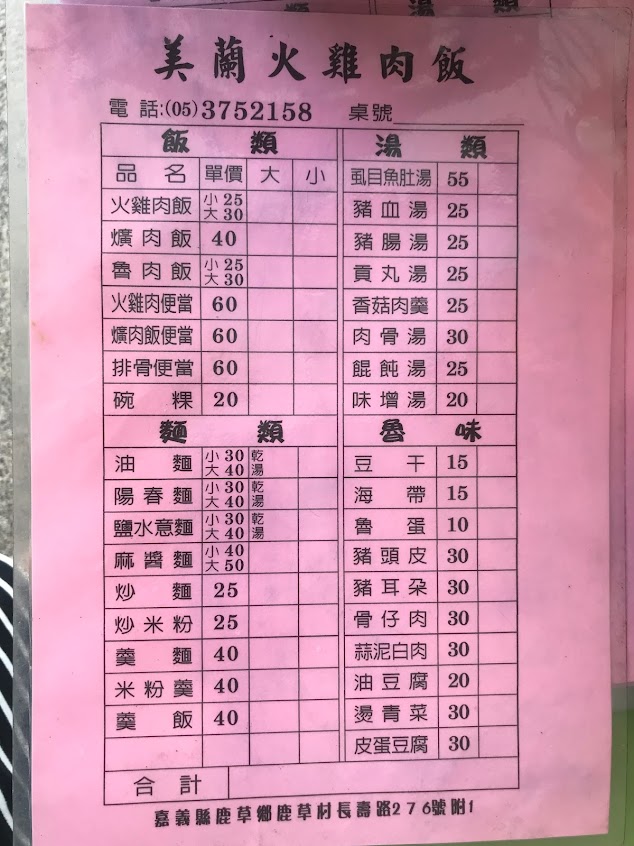 美蘭火雞肉飯
電話:(05)3752158 桌號
飯類
品名 單價 大 小
火雞肉飯 小25 大30
爌肉飯 40
魯肉飯 小25 大30
火雞肉便當 60
爌肉飯便當 60
排骨便當 60
碗粿 20
麵類
油麵 小30 大40 乾 湯
陽春麵 小30 大40 乾 湯
鹽水意麵 小30 大40 乾 湯
麻醬麵 小40 大50
炒麵 25
炒米粉 25
羹麵 40
米粉羹 40
羹飯 40
湯類
虱目魚肚湯 55
豬血湯 25
豬腸湯 25
貢丸湯 25
香菇肉羹 25
肉骨湯 30
餛飩湯 25
味增湯 20
魯味
豆干 15
海帶 15
魯蛋 10
豬頭皮 30
豬耳朵 30
骨仔肉 30
蒜泥白肉 30
油豆腐 20
燙青菜 30
皮蛋豆腐 30
合計
嘉義縣鹿草鄉鹿草村長壽路276號附1